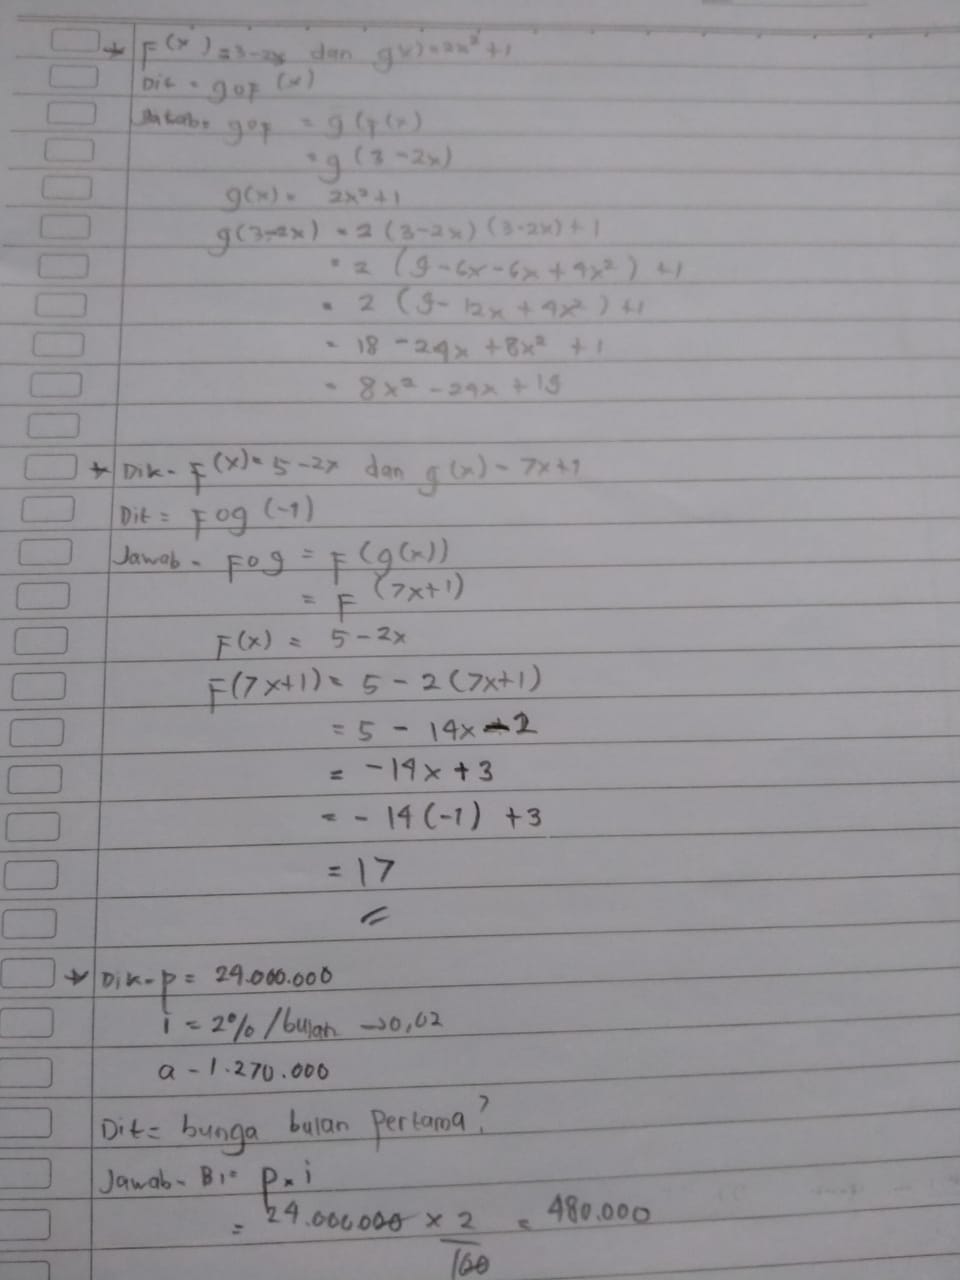 * F(x) = 3-2x dan g(x) = 2x² + 1
Dit = gof (x)
Jawab = gof = g(f(x))
= g (3-2x)
g(x) = 2x² + 1
g(3-2x) = 2 (3-2x) (3-2x) + 1
= 2 (9-6x-6x+4x²) + 1
= 2 (9-12x+4x²) + 1
= 18 - 24x + 8x² + 1
= 8x² - 24x + 19
* Dik = F(x) = 5-2x dan g(x) = 7x+1
Dit = Fog (-1)
Jawab = Fog = F(g(x))
= F (7x+1)
F(x) = 5-2x
F(7x+1) = 5 - 2(7x+1)
= 5 - 14x - 2
= -14x + 3
= - 14 (-1) + 3
= 17
* Dik = p = 24.000.000
i = 2% /bulan → 0,02
a = 1.270.000
Dit = bunga bulan pertama?
Jawab = B1 = p x i
= 24.000.000 x 2/100 = 480.000